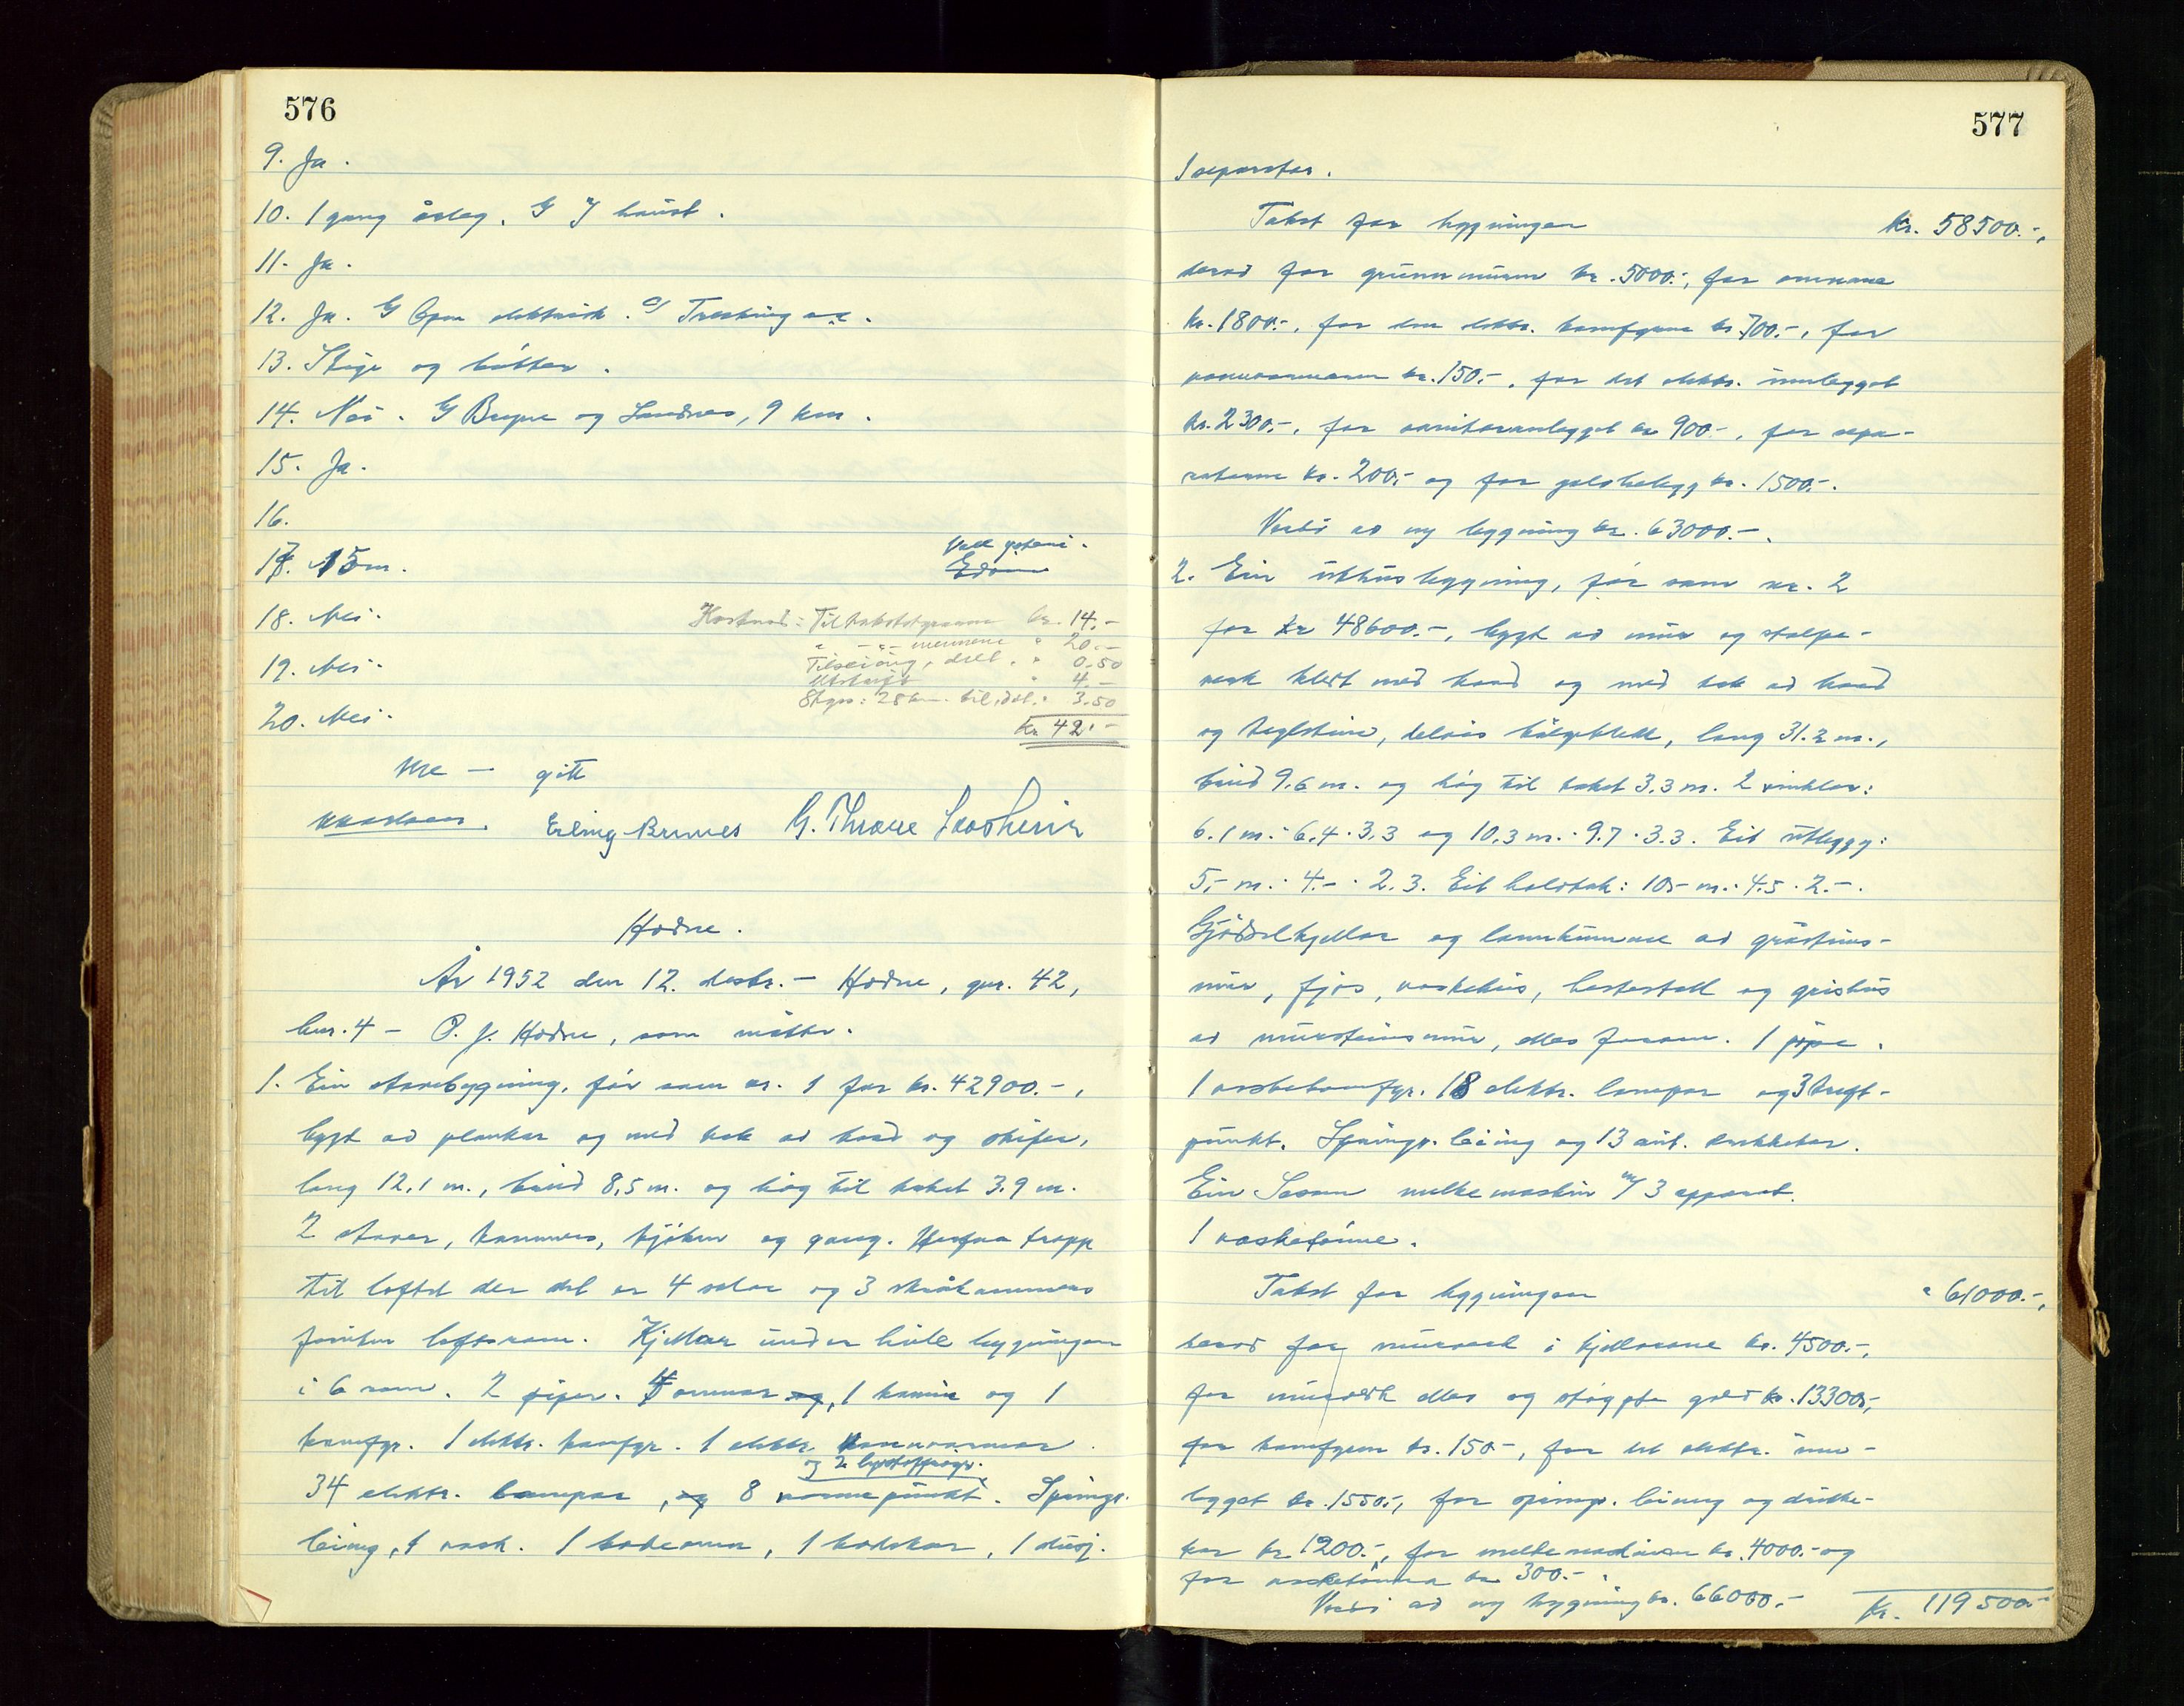 576
9. Ja.
10. 1 gang årleg. G I haust.
11. Ja.
12. Ja. G Open elektrisk. c/ Tresking
13. Stige og bøtter.
14. Nei. G Bryne og Sandnes, 9 km.
15. Ja.
16.
17. 15 m.
18. Nei.
Kostnad: Til takststyraren kr. 14.-
19. Nei.
" -"- mennene " 20.-
Tilseiing, delt. " 0.50
Utskrift " 4.-
Skyss: 28 km. til, del. " 3.50
20. Nei.
kr. 42.-
Me — gitt
Erling Brunes G. Thrane
Hodne.
År 1952 den 12. desbr. — Hodne, gnr. 42,
bnr. 4 — P. J. Hodne, som møtte.
1. Ein stovebygning, før som nr. 1 for kr. 42900.-,
bygt av plankar og med tak av bord og skifer,
lang 12,1 m., breid 8,5 m. og høg til taket 3.9 m.
2 stover, kammers, kjøken og gang. Herfra trapp
til loftet der det er 4 salar og 3 skråkammers
foruten loftsrom. Kjellar under heile bygningen
i 6 rom. 2 piper. 4 omnar og, 1 kamin og 1
komfyr. 1 elektr. komfyr. 1 elektr.
og 2
34 elektr. lampar, og 8 varmepunkt. Springv.
leiing, 1 vask. 1 badeomn, 1 badekar, 1 dusj.
577
1 separator.
Takst for bygningen kr. 58500.-,
herav for grunnmuren kr. 5000.-, for omnane
kr. 1800.-, for den elektr. komfyren kr. 700.-, for
kr. 150.-, for det elektr. innlegget
kr. 2300.-, for sanitæranlegget kr 900.-, for sepa-
ratoren kr. 200.- og for golvbelegg kr. 1500.-.
Verdi av ny bygning kr. 63000.-.
2. Ein uthusbygning, før som nr. 2
for kr 48600.-, bygt av mur og stolpe-
verk kledt med bord og med tak av bord
og teglstein, delvis bølgeblekk, lang 31.2 m.,
breid 9.6 m. og høg til taket 3.3 m. 2 vinklar:
6.1 m. · 6.4 · 3.3 og 10.3 m. · 9.7 · 3.3. Eit utbygg:
5.- m. · 4.- · 2.3. Eit halvtak: 10.- m. · 4.5 · 2.-.
Gjødselkjellar og landkummar av gråsteins-
mur, fjøs, vaskehus, hestestall og grishus
av mursteinsmur, elles forom. 1 pipe.
1 vaskekomfyr. 18 elektr. lampar og 3 kraft-
punkt. Springv. leiing og 13 aut. drikkekar.
Ein melkemaskin m/ 3 apparat.
1 vasketønne.
Takst for bygningen " 61000.-,
herav for murverk i kjellarane kr. 4500.-,
for murverk elles og støypte golv kr. 13300.-,
for komfyren kr. 150.-, for det elektr. inn-
legget kr. 1550.-, for springv. leiing og drikke-
kar kr 1200.-, for melkemaskinen kr. 4000.- og
for vasketønna kr 300.-.
Verdi av ny bygning kr. 66000.- Kr. 119500.-